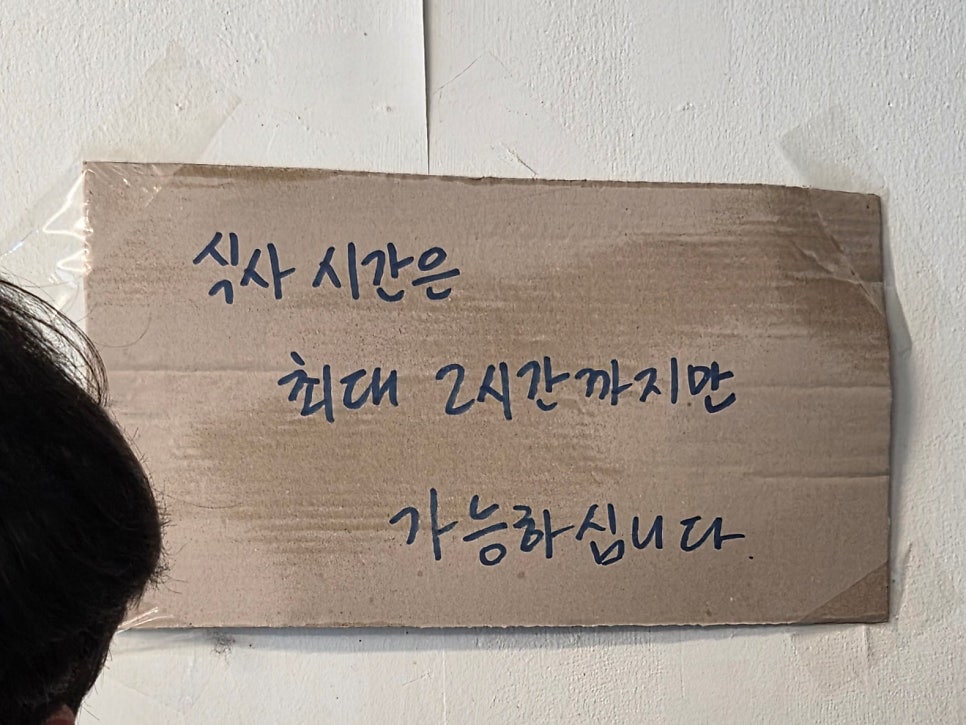 식사 시간은
최대 2시간까지만
가능하십니다.